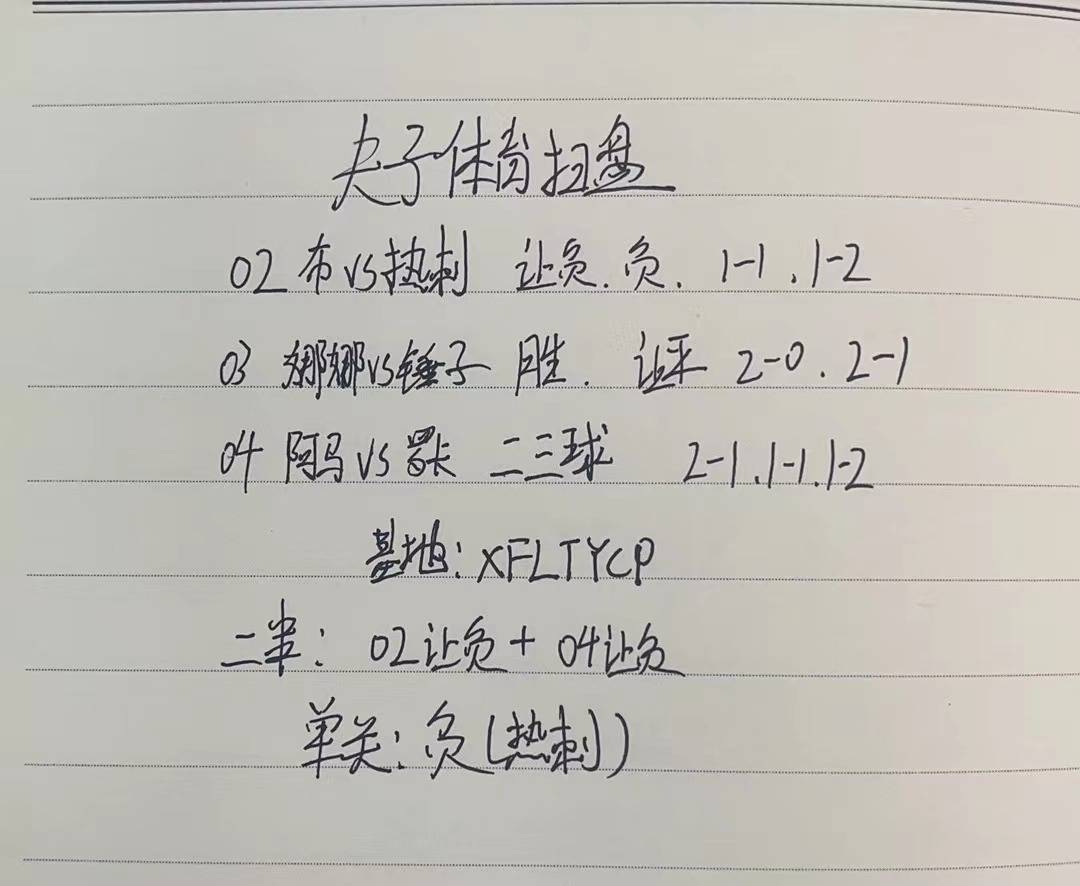 夫子体育扫盘
02 布VS热刺 让负.负. 1-1.1-2
03 娜娜VS锤子 胜. 让平 2-0.2-1
04 阿马VS罗卡 二三球 2-1.1-1.1-2
基地:XFLTYCP
二串:02让负+04让负
单关:负(热刺)